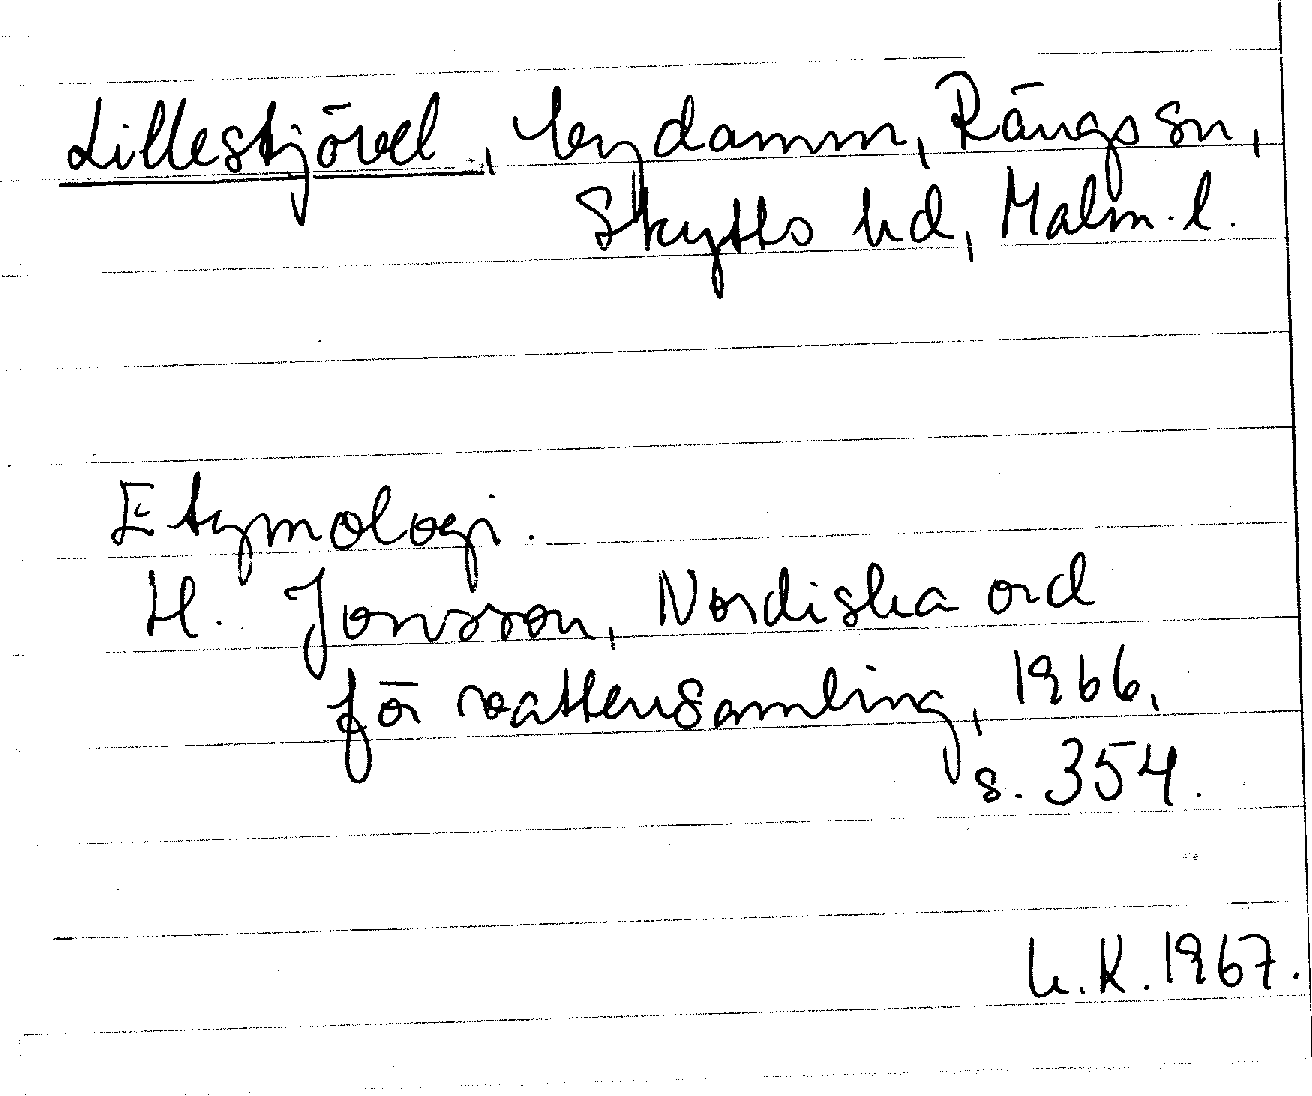 Lilleskjövel, bydamm, Rängs sn,
Skytts hd, Malm. l.
Etymologi.
H. Jonsson, Nordiska ord
för vattensamling, 1966,
s. 354.
L.K. 1967.